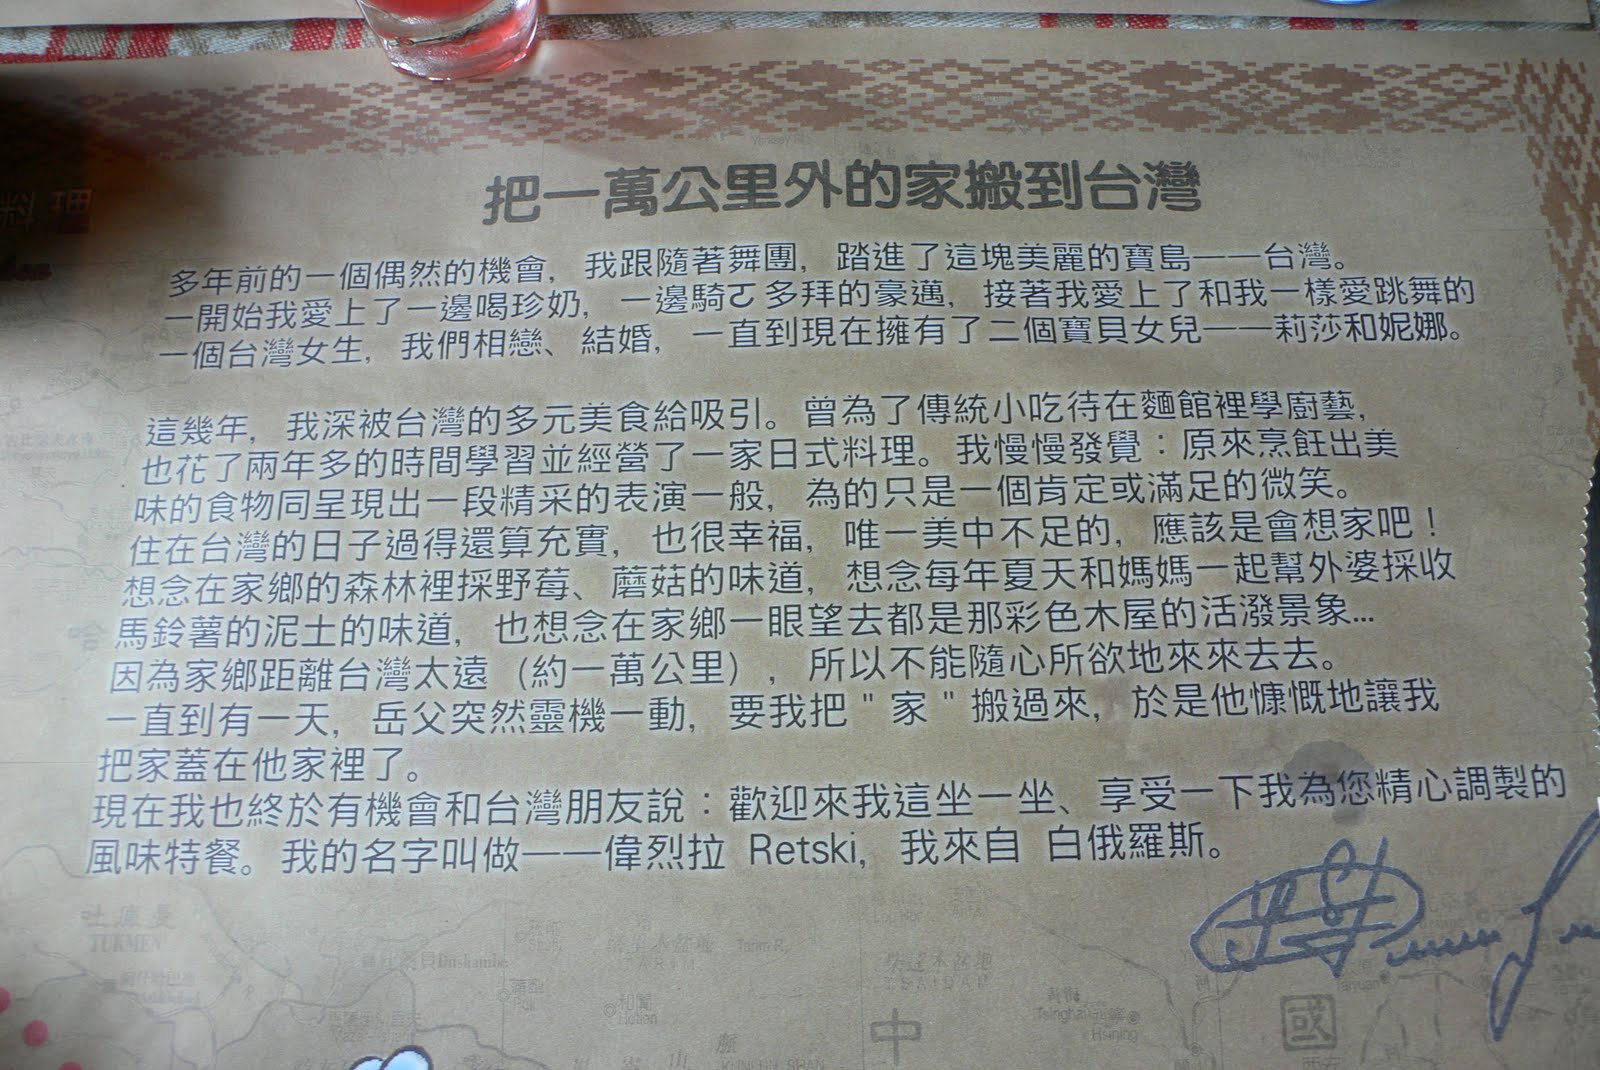 料理
把一萬公里外的家搬到台灣
多年前的一個偶然的機會，我跟隨著舞團，踏進了這塊美麗的寶島——台灣。
一開始我愛上了一邊喝珍奶，一邊騎ㄛ多拜的豪邁，接著我愛上了和我一樣愛跳舞的
一個台灣女生，我們相戀、結婚，一直到現在擁有了二個寶貝女兒——莉莎和妮娜。
這幾年，我深被台灣的多元美食給吸引。曾為了傳統小吃待在麵館裡學廚藝，
也花了兩年多的時間學習並經營了一家日式料理。我慢慢發覺：原來烹飪出美
味的食物同呈現出一段精采的表演一般，為的只是一個肯定或滿足的微笑。
住在台灣的日子過得還算充實，也很幸福，唯一美中不足的，應該是會想家吧！
想念在家鄉的森林裡採野莓、蘑菇的味道，想念每年夏天和媽媽一起幫外婆採收
馬鈴薯的泥土的味道，也想念在家鄉一眼望去都是那彩色木屋的活潑景象...
因為家鄉距離台灣太遠（約一萬公里），所以不能隨心所欲地來來去去。
一直到有一天，岳父突然靈機一動，要我把＂家＂搬過來，於是他慷慨地讓我
把家蓋在他家裡了。
現在我也終於有機會和台灣朋友說：歡迎來我這坐一坐、享受一下我為您精心調製的
風味特餐。我的名字叫做——偉烈拉 Retski，我來自 白俄羅斯。
吐庫曼
TUKMEN
Dushambe
柴達木盆地
TSAIDAM
和闐
Hotien
Tsinghai
Hsining
中
國